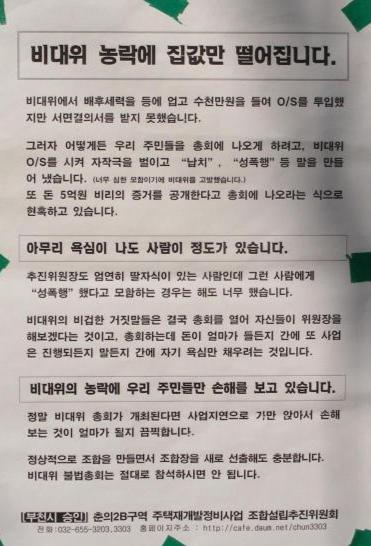 비대위 농락에 집값만 떨어집니다.
비대위에서 배후세력을 등에 업고 수천만원을 들여 O/S를 투입했
지만 서면결의서를 받지 못했습니다.
그러자 어떻게든 우리 주민들을 총회에 나오게 하려고, 비대위
O/S를 시켜 자작극을 벌이고 "납치", "성폭행" 등 말을 만들
어 냈습니다. (너무 심한 모함이기에 비대위를 고발했습니다.)
또 돈 5억원 비리의 증거를 공개한다고 총회에 나오라는 식으로
현혹하고 있습니다.
아무리 욕심이 나도 사람이 정도가 있습니다.
추진위원장도 엄연히 딸자식이 있는 사람인데 그런 사람에게
"성폭행" 했다고 모함하는 경우는 해도 너무 했습니다.
비대위의 비겁한 거짓말들은 결국 총회를 열어 자신들이 위원장을
해보겠다는 것이고, 총회하는데 돈이 얼마가 들든지 간에 또 사업
은 진행되든지 말든지 간에 자기 욕심만 채우려는 것입니다.
비대위의 농락에 우리 주민들만 손해를 보고 있습니다.
정말 비대위 총회가 개최된다면 사업지연으로 가만 앉아서 손해
보는 것이 얼마가 될지 끔찍합니다.
정상적으로 조합을 만들면서 조합장을 새로 선출해도 충분합니다.
비대위 불법총회는 절대로 참석하시면 안 됩니다.
[부천시 승인] 춘의2B구역 주택재개발정비사업 조합설립추진위원회
전화:032-655-3203,3303 홈페이지주소 : http://cafe.daum.net/chun3303